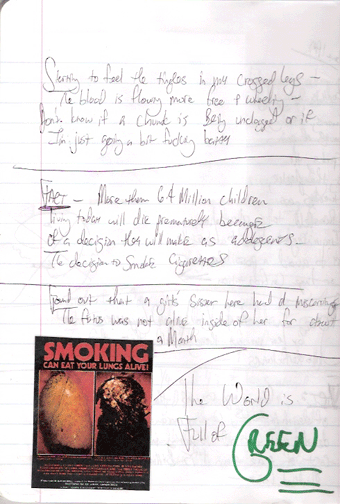 Starting to feel the tingles in my crossed legs -
The blood is flowing more free + wheely -
Don't know if a chunk is being unclogged or if
I'm just going a bit fucking batty
FACT - More than 6.4 Million children
living today will die prematurely because
of a decision they will make as adolescents -
The decision to smoke Cigarettes
Found out that a girl's sister here had a miscarriage
The fetus was not alive inside of her for about
a Month
SMOKING
CAN EAT YOUR LUNGS ALIVE!
The World is
full of GREEN